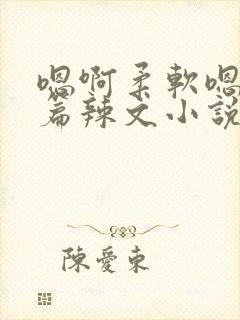 嗯啊柔軟嗯
篇辣文小說
陳愛東